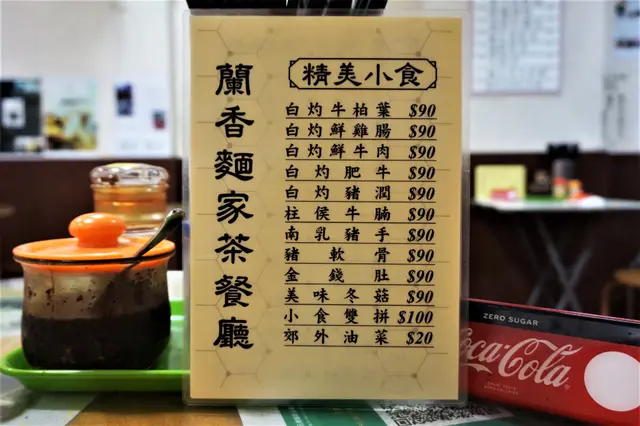 蘭香麵家茶餐廳
精美小食
白灼牛柏葉 $90
白灼鮮雞腸 $90
白灼鮮牛肉 $90
白灼肥牛 $90
白灼豬潤 $90
柱侯牛腩 $90
南乳豬手 $90
豬軟骨 $90
金錢肚 $90
美味冬菇 $90
小食雙拼 $100
郊外油菜 $20
ZERO SUGAR
Coca-Cola